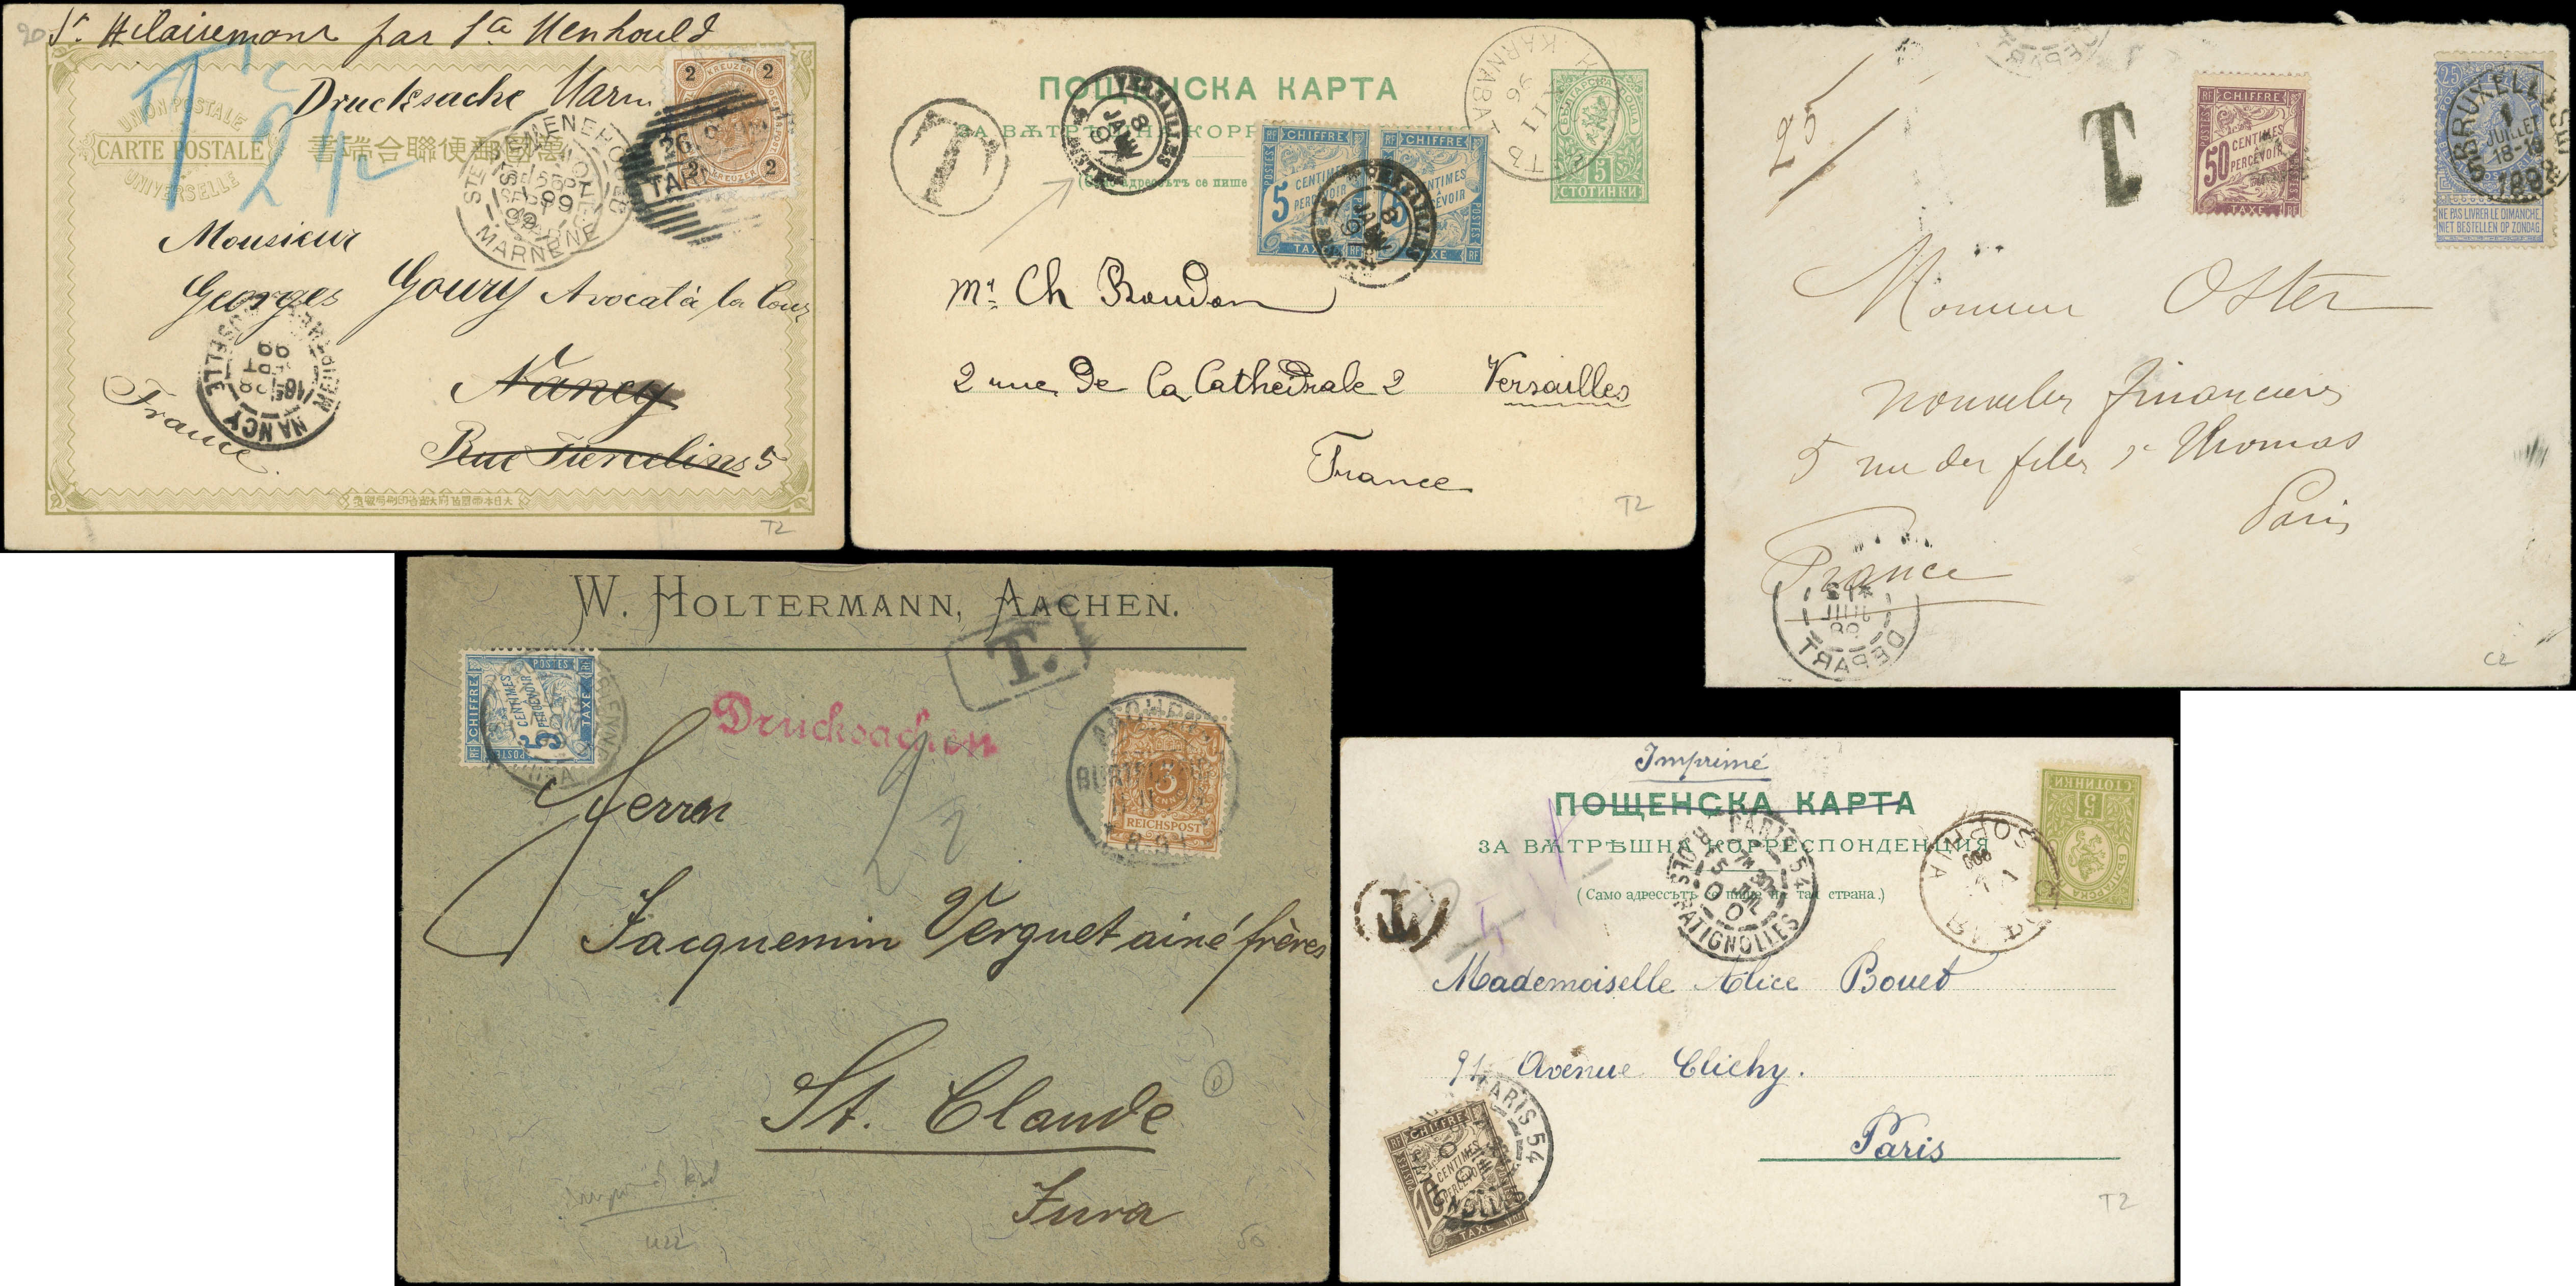 St Hilairemont par Ste Menhould
Drucksache Marn
UNION POSTALE
CARTE POSTALE
UNIVERSELLE
萬國郵便聯合端書
T 2 1/2
2 KREUZER 2
2 2
26.9
TAR
STE MENEHOULD
SEPT
99
MARNE
Monsieur
Georges Goury Avocat à la Cour
Nancy
France
5
NANCY
16E 28
SEPT
99
T2
ПОЩЕНСКА КАРТА
ЗА ВѪТРѢШНА КОРР
(Само адрессътъ се пише
T
VERSAILLES
8
JANV
KARNABAT
XII
96
5
СТОТИНКИ
RF CHIFFRE
POSTES
5 CENTIMES
PERCEVOIR
TAXE RF
CHIFFRE RF
CENTIMES
PERCEVOIR
POSTES
TAXE RF
VERSAILLES
8
JANV
Mr Ch Roudon
2 rue De La Cathédrale 2 Versailles
France
T2
25
T
RF CHIFFRE
POSTES
50 CENTIMES
PERCEVOIR
TAXE RF
25
BRUXELLES
1
JUILLET
18-19
NE PAS LIVRER LE DIMANCHE
NIET BESTELLEN OP ZONDAG
Monsieur Oster
Nouvelles financières
5 rue des filles St Thomas
Paris
France
DEPART
C2
W. HOLTERMANN, AACHEN.
T.
Drucksachen
RF CHIFFRE
POSTES
5 CENTIMES
PERCEVOIR
TAXE
3
REICHSPOST
Herren
Jacquemin Verguet ainé frères
St. Claude
Jura
D
50
Imprimé
ПОЩЕНСКА КАРТА
ЗА ВѪТРѢШНА КОРРЕСПОНДЕНЦИЯ
(Само адрессътъ се пише на тая страна.)
T
PARIS 54
BATIGNOLLES
SOPHIA
5
СТОТИНКИ
Mademoiselle Alice Bouet
91, Avenue Clichy.
Paris
PARIS 54
RF CHIFFRE
POSTES
10 CENTIMES
PERCEVOIR
TAXE
T2